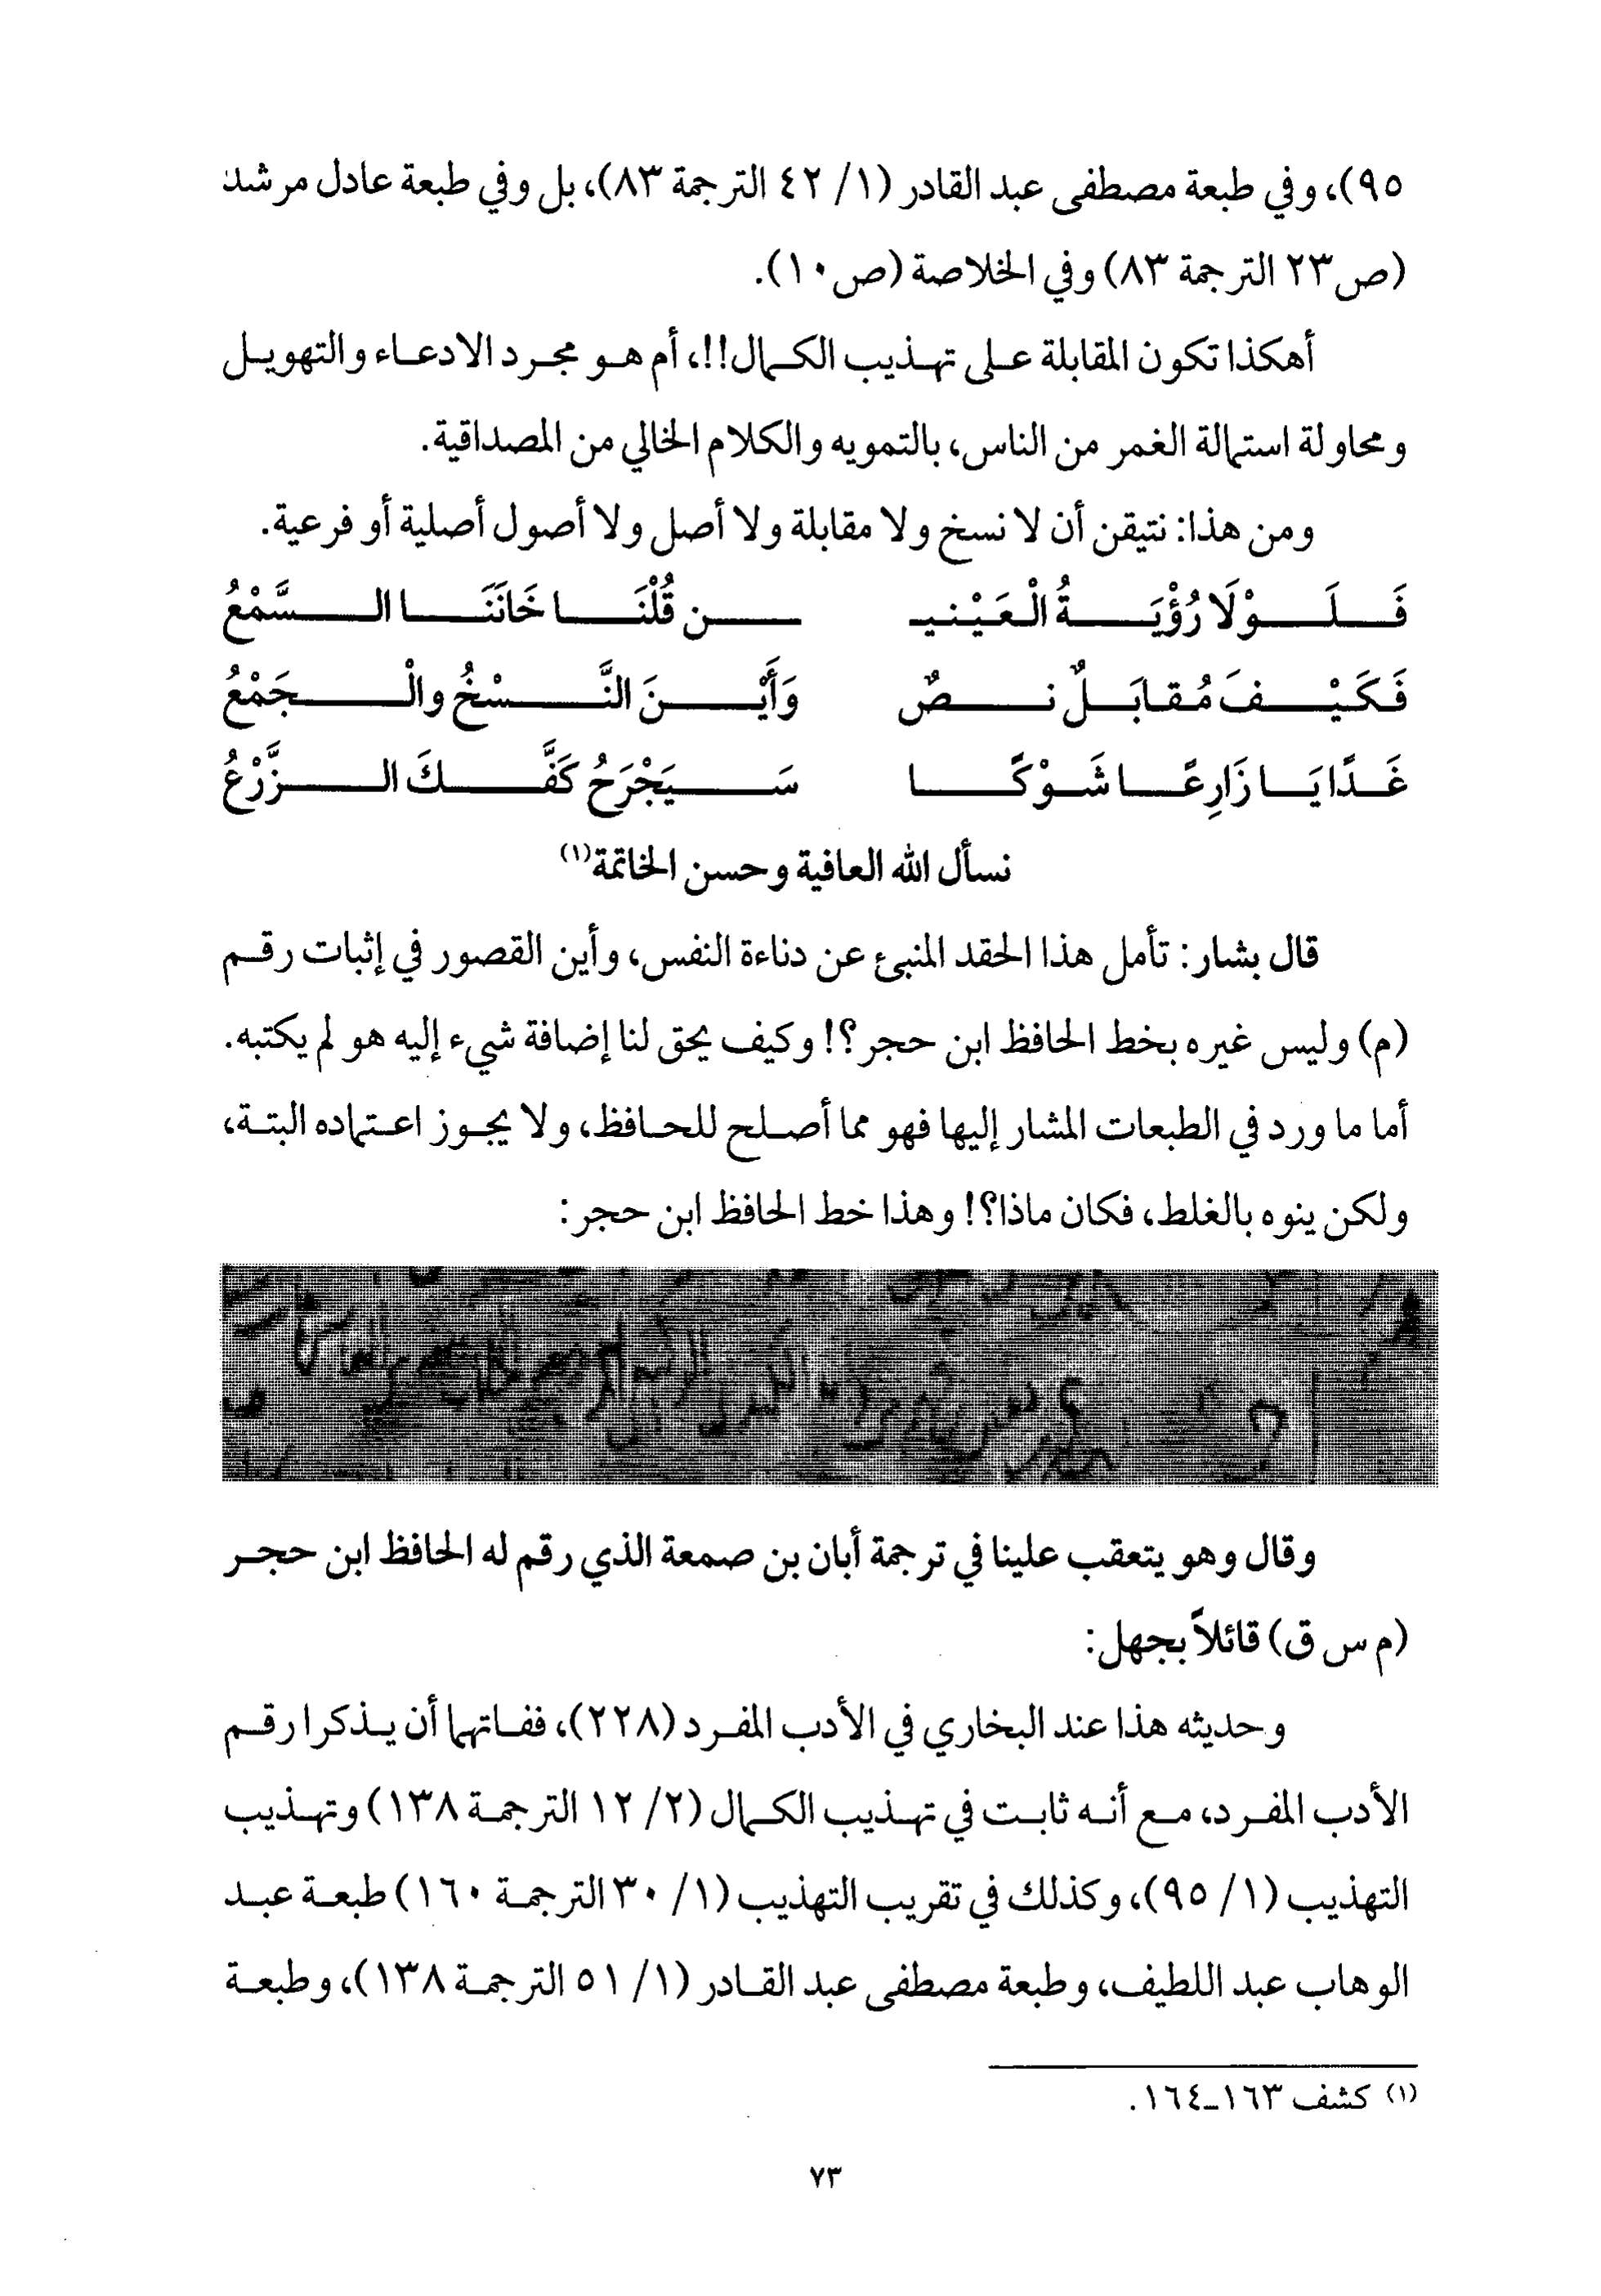 ٩٥)، وفي طبعة مصطفى عبد القادر (١/ ٤٢ الترجمة ٨٣)، بل وفي طبعة عادل مرشد
(ص٢٣ الترجمة ٨٣) وفي الخلاصة (ص١٠).
أهكذا تكون المقابلة على تهذيب الكمال!!، أم هو مجرد الادعاء والتهويل
ومحاولة استمالة الغمر من الناس، بالتمويه والكلام الخالي من المصداقية.
ومن هذا: نتيقن أن لا نسخ ولا مقابلة ولا أصل ولا أصول أصلية أو فرعية.
فَلَوْلَا رُؤْيَةُ الْعَيْنيـ ـن قُلْنَا خَانَنَا السَّمْعُ
فَكَيْفَ مُقابَلٌ نصٌ وَأَيْنَ النَّسْخُ والْجَمْعُ
غَدًا يَا زَارِعًا شَوْكًا سَيَجْرَحُ كَفَّكَ الزَّرْعُ
نسأل الله العافية وحسن الخاتمة(١)
قال بشار: تأمل هذا الحقد المنبئ عن دناءة النفس، وأين القصور في إثبات رقم
(م) وليس غيره بخط الحافظ ابن حجر؟! وكيف يحق لنا إضافة شيء إليه هو لم يكتبه.
أما ما ورد في الطبعات المشار إليها فهو مما أصلح للحافظ، ولا يجوز اعتماده البتة،
ولكن ينوه بالغلط، فكان ماذا؟! وهذا خط الحافظ ابن حجر:
وقال وهو يتعقب علينا في ترجمة أبان بن صمعة الذي رقم له الحافظ ابن حجر
(م س ق) قائلاً بجهل:
وحديثه هذا عند البخاري في الأدب المفرد (٢٢٨)، ففاتهما أن يذكرا رقم
الأدب المفرد، مع أنه ثابت في تهذيب الكمال (٢/ ١٢ الترجمة ١٣٨) وتهذيب
التهذيب (١/ ٩٥)، وكذلك في تقريب التهذيب (١/ ٣٠ الترجمة ١٦٠) طبعة عبد
الوهاب عبد اللطيف، وطبعة مصطفى عبد القادر (١/ ٥١ الترجمة ١٣٨)، وطبعة
(١) كشف ١٦٣-١٦٤.
٧٣